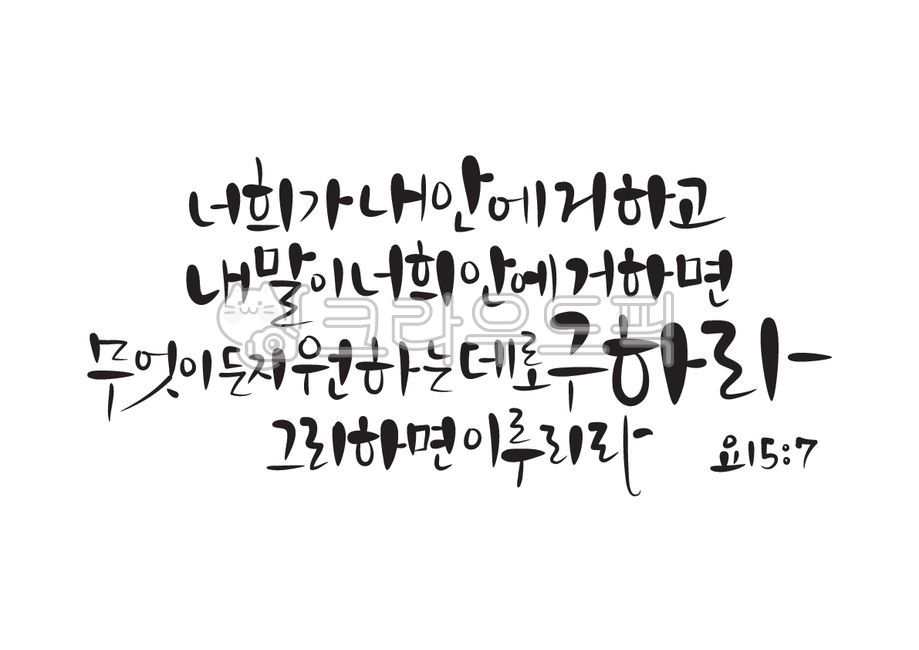 너희가 내 안에 거하고
내 말이 너희 안에 거하면
크라우드픽
무엇이든지 원하는데로 구하라
그리하면 이루리라
요15:7